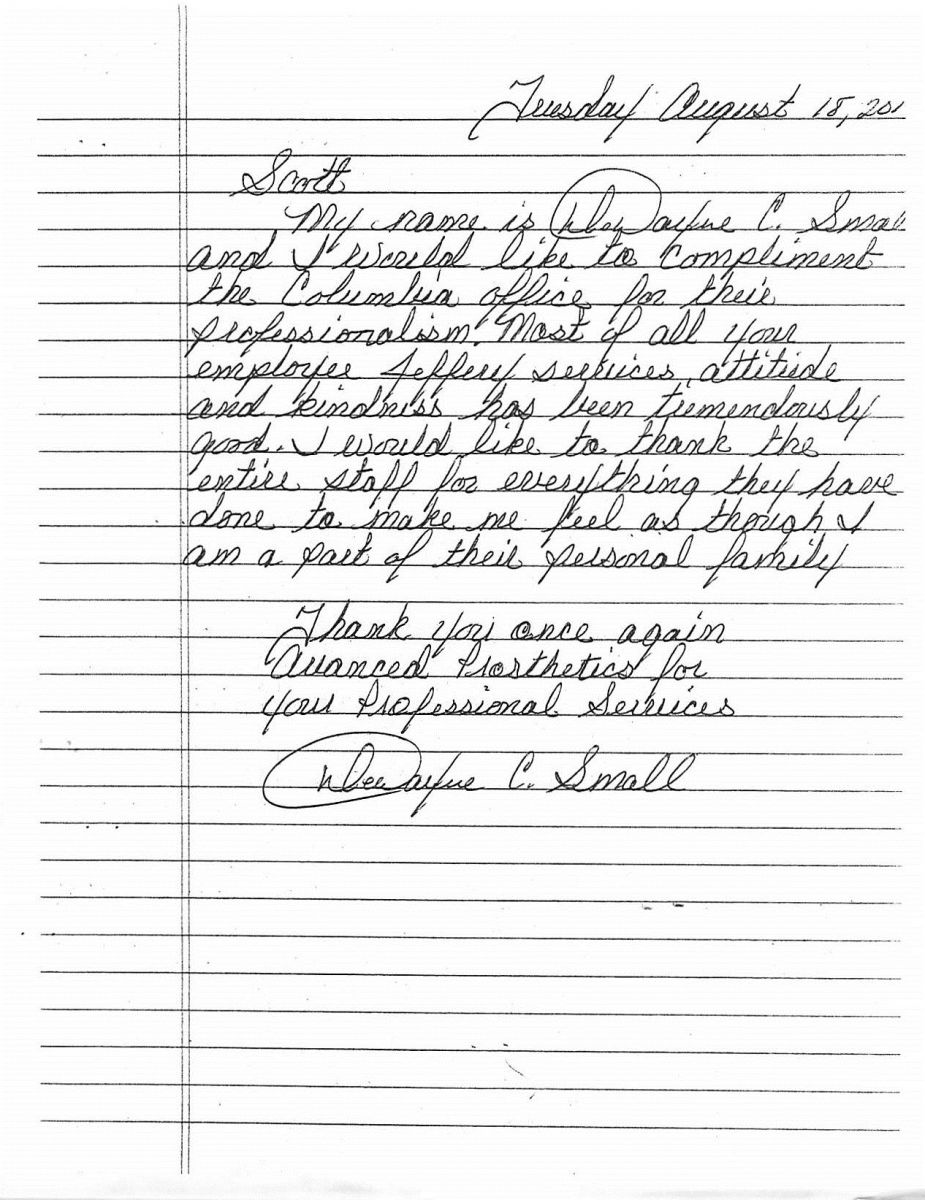 Tuesday August 18, 201
Scott
My name is DeWayne C. Small
and I would like to compliment
the Columbia office for their
professionalism. Most of all your
employee Jeffery services, attitude
and kindness has been tremendously
good. I would like to thank the
entire staff for everything they have
done to make me feel as though I
am a part of their personal family
Thank you once again
Avanced Prosthetics for
your Professional Services
C. Small